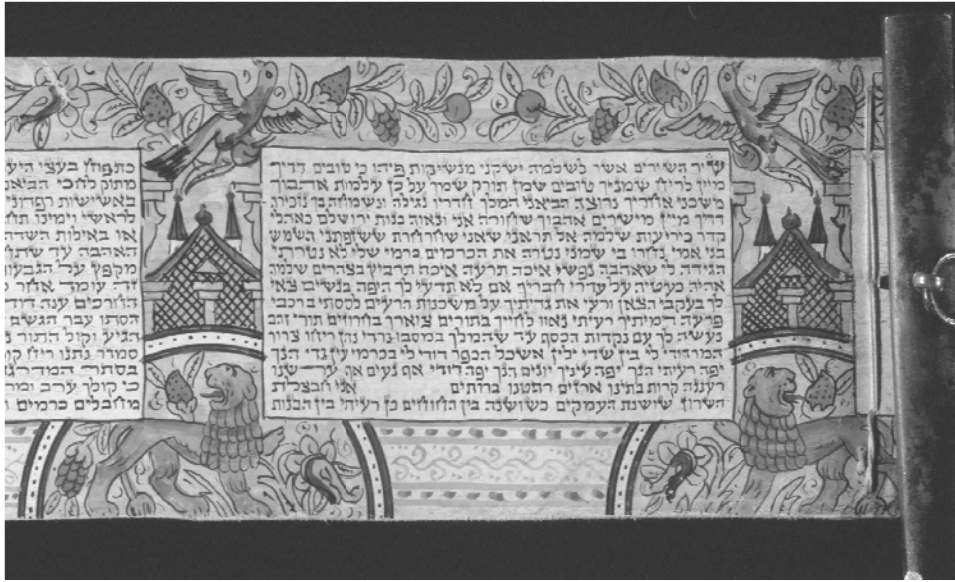 שיר השירים אשר לשלמה ישקני מנשיקות פיהו כי טובים דדיך
מיין לריח שמניך טובים שמן תורק שמך על כן עלמות אהבוך
משכני אחריך נרוצה הביאני המלך חדריו נגילה ונשמחה בך נזכירה
דדיך מיין מישרים אהבוך שחורה אני ונאוה בנות ירושלם כאהלי
קדר כיריעות שלמה אל תראני שאני שחרחרת ששזפתני השמש
בני אמי נחרו בי שמני נטרה את הכרמים כרמי שלי לא נטרתי
הגידה לי שאהבה נפשי איכה תרעה איכה תרביץ בצהרים שלמה
אהיה כעטיה על עדרי חבריך אם לא תדעי לך היפה בנשים צאי
לך בעקבי הצאן ורעי את גדיתיך על משכנות הרעים לססתי ברכבי
פרעה דמיתיך רעיתי נאוו לחייך בתורים צוארך בחרוזים תורי זהב
נעשה לך עם נקדות הכסף עד שהמלך במסבו נרדי נתן ריחו צרור
המר דודי לי בין שדי ילין אשכל הכפר דודי לי בכרמי עין גדי הנך
יפה רעיתי הנך יפה עיניך יונים הנך יפה דודי אף נעים אף ערשנו
רעננה קרות בתינו ארזים רחיטנו ברותים אני חבצלת
השרון שושנת העמקים כשושנה בין החוחים כן רעיתי בין הבנות
כתפוח בעצי היע
מתוק לחכי הביאנ
באשישות רפדוני
לראשי וימינו תח
או באילות השדה
האהבה עד שתח
מקפץ על הגבעו
זה עומד אחר
החרכים ענה דודי
הסתו עבר הגשם
הגיע וקול התור
סמדר נתנו ריח
בסתר המדרג
כי קולך ערב ומר
מחבלים כרמים